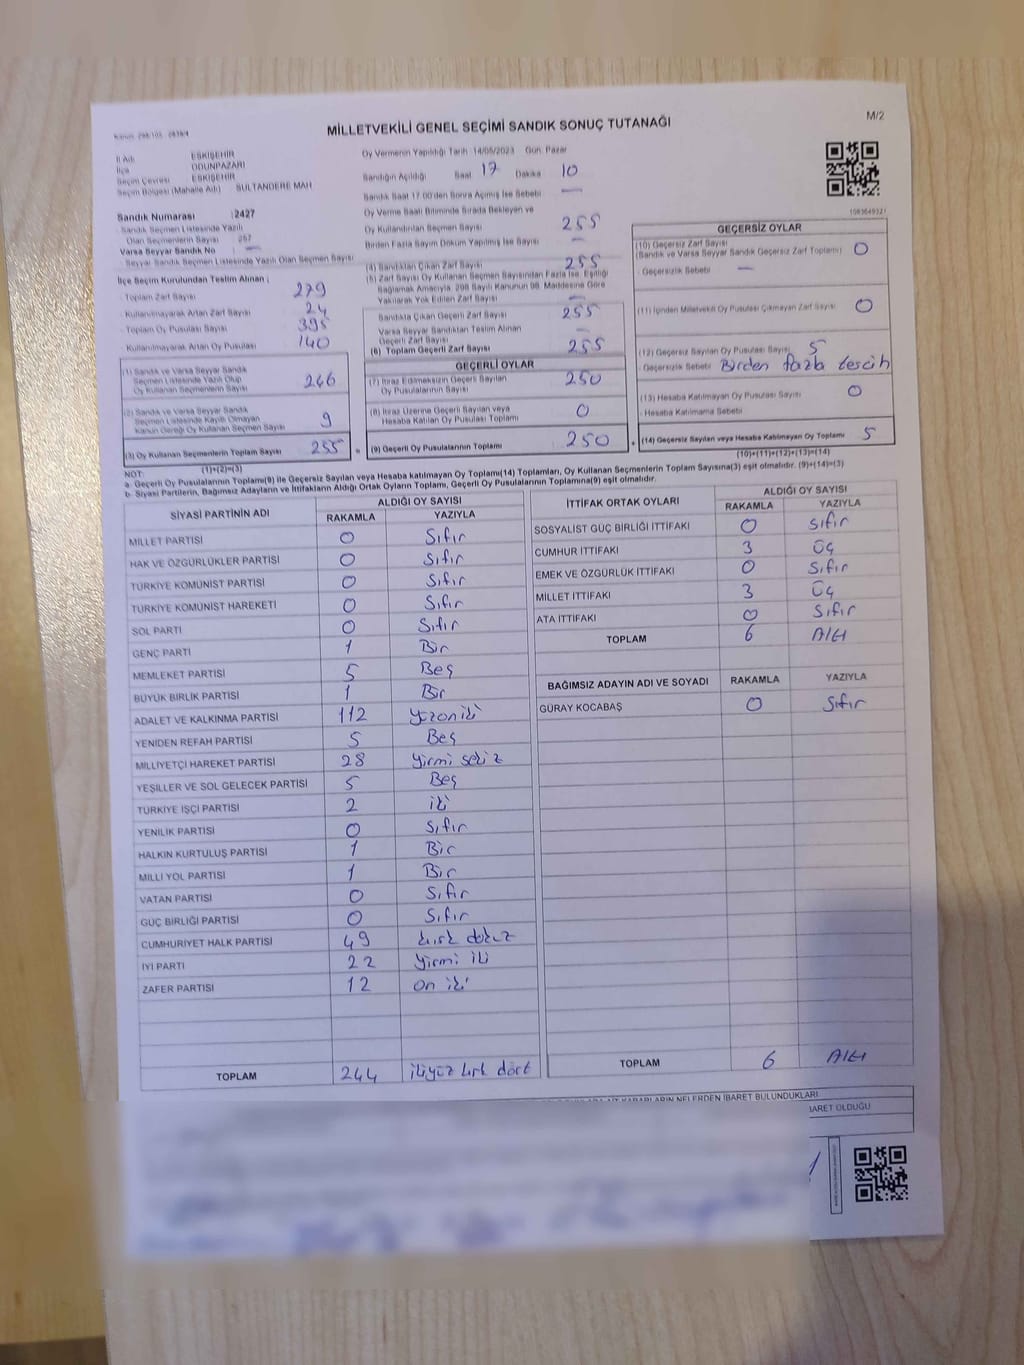 MİLLETVEKİLİ GENEL SEÇİMİ SANDIK SONUÇ TUTANAĞI
M/2
İl Adı ESKİŞEHİR
İlçe ODUNPAZARI
Seçim Çevresi ESKİŞEHİR
Seçim Bölgesi (Mahalle Adı) SULTANDERE MAH
Sandık Numarası :2427
Sandık Seçmen Listesinde Yazılı
Olan Seçmenlerin Sayısı 257
Varsa Seyyar Sandık No —
Seyyar Sandık Seçmen Listesinde Yazılı Olan Seçmen Sayısı
İlçe Seçim Kurulundan Teslim Alınan ;
Toplam Zarf Sayısı 279
Kullanılmayarak Artan Zarf Sayısı 24
Toplam Oy Pusulası Sayısı 395
Kullanılmayarak Artan Oy Pusulası 140
(1) Sandık ve Varsa Seyyar Sandık
Seçmen Listesinde Yazılı Olup
Oy Kullanan Seçmenlerin Sayısı 246
(2) Sandık ve Varsa Seyyar Sandık
Seçmen Listesinde Kayıtlı Olmayan
Kanun Gereği Oy Kullanan Seçmen Sayısı 9
(3) Oy Kullanan Seçmenlerin Toplam Sayısı 255
(1)+(2)=(3)
Oy Vermenin Yapıldığı Tarih 14/05/2023 Gün: Pazar
Sandığın Açıldığı Saat 17 Dakika 10
Sandık Saat 17:00'den Sonra Açılmış İse Sebebi —
Oy Verme Saati Bitiminde Sırada Bekleyen ve
Oy Kullandırılan Seçmen Sayısı 255
Birden Fazla Sayım Döküm Yapılmış İse Sayısı —
(4) Sandıktan Çıkan Zarf Sayısı 255
(5) Zarf Sayısı Oy Kullanan Seçmen Sayısından Fazla İse, Eşitliği
Sağlamak Amacıyla, 298 Sayılı Kanunun 98. Maddesine Göre
Yakılarak Yok Edilen Zarf Sayısı —
Sandıkta Çıkan Geçerli Zarf Sayısı 255
Varsa Seyyar Sandıktan Teslim Alınan
Geçerli Zarf Sayısı —
(6) Toplam Geçerli Zarf Sayısı 255
GEÇERLİ OYLAR
(7) İtiraz Edilmeksizin Geçerli Sayılan
Oy Pusulalarının Sayısı 250
(8) İtiraz Üzerine Geçerli Sayılan veya
Hesaba Katılan Oy Pusulası Sayısı 0
(9) Geçerli Oy Pusulalarının Toplamı 250
GEÇERSİZ OYLAR
(10) Geçersiz Zarf Sayısı
(Sandık ve Varsa Seyyar Sandık Geçersiz Zarf Toplamı) 0
Geçersizlik Sebebi —
(11) İçinden Milletvekili Oy Pusulası Çıkmayan Zarf Sayısı 0
(12) Geçersiz Sayılan Oy Pusulası Sayısı 5
Geçersizlik Sebebi Birden fazla tercih
(13) Hesaba Katılmayan Oy Pusulası Sayısı 0
Hesaba Katılmama Sebebi
(14) Geçersiz Sayılan veya Hesaba Katılmayan Oy Toplamı 5
(10)+(11)+(12)+(13)=(14)
NOT:
a. Geçerli Oy Pusulalarının Toplamı(9) ile Geçersiz Sayılan veya Hesaba katılmayan Oy Toplamı(14) Toplamları, Oy Kullanan Seçmenlerin Toplam Sayısına(3) eşit olmalıdır. (9)+(14)=(3)
b. Siyasi Partilerin, Bağımsız Adayların ve İttifakların Aldığı Ortak Oyların Toplamı, Geçerli Oy Pusulalarının Toplamına(9) eşit olmalıdır.
SİYASİ PARTİNİN ADI ALDIĞI OY SAYISI
RAKAMLA YAZIYLA
MİLLET PARTİSİ 0 Sıfır
HAK VE ÖZGÜRLÜKLER PARTİSİ 0 Sıfır
TÜRKİYE KOMÜNİST PARTİSİ 0 Sıfır
TÜRKİYE KOMÜNİST HAREKETİ 0 Sıfır
SOL PARTİ 0 Sıfır
GENÇ PARTİ 1 Bir
MEMLEKET PARTİSİ 5 Beş
BÜYÜK BİRLİK PARTİSİ 1 Bir
ADALET VE KALKINMA PARTİSİ 112 yüzoniki
YENİDEN REFAH PARTİSİ 5 Beş
MİLLİYETÇİ HAREKET PARTİSİ 28 yirmi sekiz
YEŞİLLER VE SOL GELECEK PARTİSİ 5 Beş
TÜRKİYE İŞÇİ PARTİSİ 2 iki
YENİLİK PARTİSİ 0 Sıfır
HALKIN KURTULUŞ PARTİSİ 1 Bir
MİLLİ YOL PARTİSİ 1 Bir
VATAN PARTİSİ 0 Sıfır
GÜÇ BİRLİĞİ PARTİSİ 0 Sıfır
CUMHURİYET HALK PARTİSİ 49 kırk dokuz
İYİ PARTİ 22 yirmi iki
ZAFER PARTİSİ 12 on iki
TOPLAM 244 ikiyüz kırk dört
İTTİFAK ORTAK OYLARI ALDIĞI OY SAYISI
RAKAMLA YAZIYLA
SOSYALİST GÜÇ BİRLİĞİ İTTİFAKI 0 sıfır
CUMHUR İTTİFAKI 3 Üç
EMEK VE ÖZGÜRLÜK İTTİFAKI 0 Sıfır
MİLLET İTTİFAKI 3 Üç
ATA İTTİFAKI 0 Sıfır
TOPLAM 6 Altı
BAĞIMSIZ ADAYIN ADI VE SOYADI RAKAMLA YAZIYLA
GÜRAY KOCABAŞ 0 Sıfır
TOPLAM 6 Altı
NELERDEN İBARET BULUNDUKLARI
İBARET OLDUĞU